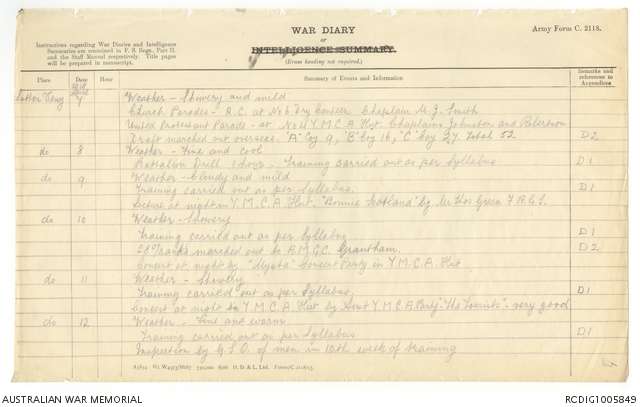 WAR DIARY
or
INTELLIGENCE SUMMARY.
(Erase heading not required.)
Army Form C. 2118.
Instructions regarding War Diaries and Intelligence
Summaries are contained in F. S. Regs., Part II.
and the Staff Manual respectively. Title pages
will be prepared in manuscript.
Place Date Hour Summary of Events and Information Remarks and references to Appendices
7 Weather - Showery and mild
Church Parades - R.C. at No 6 Dry Canteen Chaplain M. J. Smith
United Protestant Parade - at No 4 Y.M.C.A. Hut. Chaplains Johnston and Robertson
Draft marched out overseas "A" Coy 9, "B" Coy 16, "C" Coy 27. Total 52 D2
do 8 Weather - Fine and Cool
Battalion Drill 1 hour - Training carried out as per Syllabus D1
do 9 Weather - Cloudy and mild
Training carried out as per Syllabus. D1
Lecture at night in Y.M.C.A. Hut. "Bonnie Scotland" by Mr Thos Green F.R.G.S.
do 10 Weather - Showery
Training carried out as per Syllabus D1
28 O/ranks marched out to A.M.G.C. Grantham. D2
Concert at night by Concert Party in Y.M.C.A. Hut
do 11 Weather - Showery
Training carried out as per Syllabus. D1
Concert at night in Y.M.C.A. Hut by Y.M.C.A. Party "The Tourists" - very good
do 12 Weather - Fine and warm
Training carried out as per Syllabus D1
Inspection by G.S.O. of men in 10th week of training
D. & L., Ltd.
AUSTRALIAN WAR MEMORIAL
RCDIG1005849